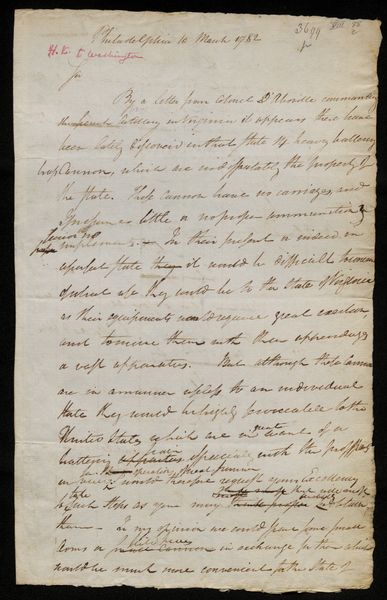 Philadelphia 10 March 1782
3694
H.K. to Washington
Sir
By a letter from Colonel D'Aboville commanding
the french Artillery in Virginia it appears there have
been lately discovered in that state 14 heavy battering
brass Cannon, which are indisputably the property of
the state. These Cannon have no carriages, and
I presume little or no proper ammunition &
implements. In their present
state it would be difficult
use they would be to the State of Virginia
as their equipments would require great
and to move them with their appendages
a vast apparatus. But although these Cannon
are in a manner useless to an individual
state they would be highly serviceable to the
United States which are in great want of a
battering apparatus especially with the prospects
in view would therefore request your Excellency
to take such steps as your may
them – in my opinion we could spare some small
arms or field pieces in exchange for them which
would be much more convenient for the State of